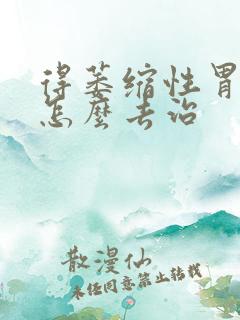 得萎缩性胃
怎麽去治
散漫仙
未经同意禁止转载